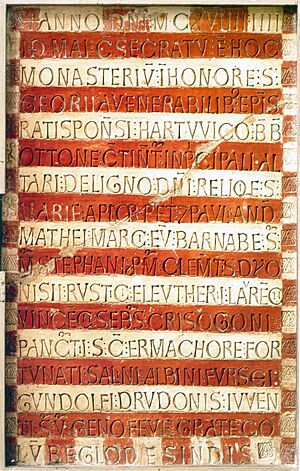 +ANNO·DNI·M·C·XVIIII·IIII·
ID·MAI·CSECRATV·E·HOC
MONASTERIV·I·HONORE·S·
GEORII·A·VENERABILIB·EPIS
RATISPONSI·HARTVVICO·BB
OTTONE·CTINT·IN·PCIPALI·AL
TARI·DE·LIGNO·DNI·RELIQE·S
MARIE·APLOR·PET·Z·PAVL·AND
MATHEI·MARC·EV·BARNABE·S
M·STEPHANI·PM·CLEMTS·DYO
NISII·RVST·ELEVTHER·LARE
VINCE·SEBS·CRISOGONI
PANCTI·S·ERMACHORE·FOR
TVNATI·SALINI·ALBINI·FVRSEI
GVNDOLFI·DRVDONIS·IVVEN
TI·S·V·GENOFEVE·GRATE·CO
LVBE·GLODESINDIS